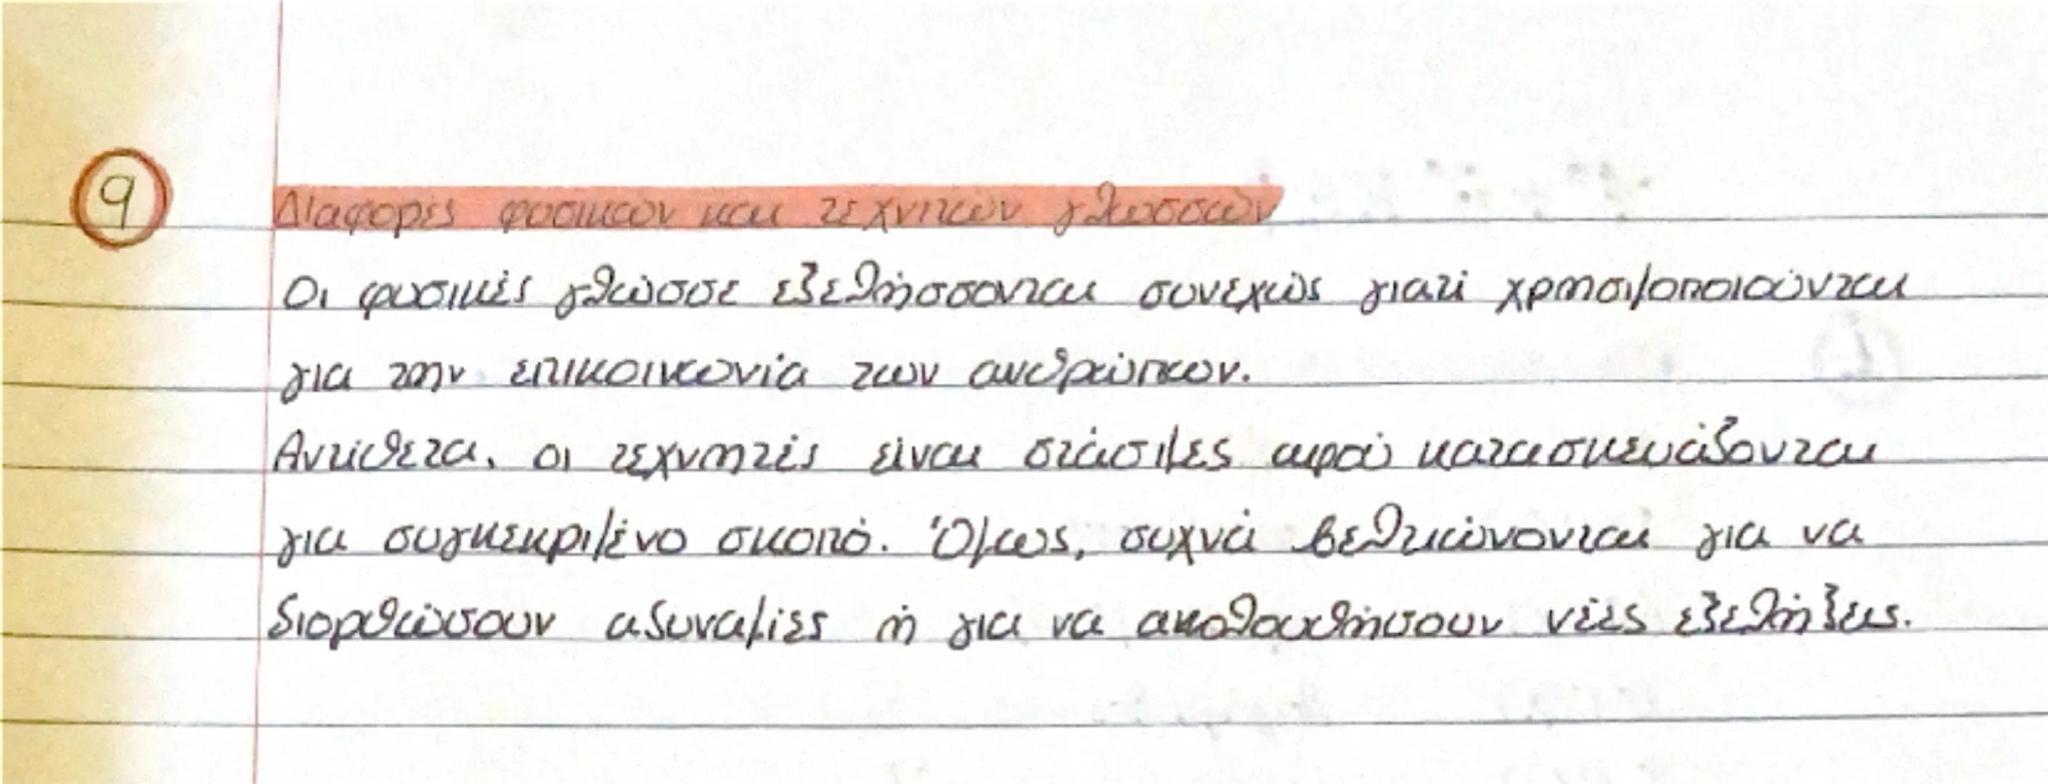 9 Διαφορές φυσικών και τεχνητών γλωσσών
Οι φυσικές γλώσσε εξελήσσονται συνεχώς γιατί χρησιμοποιούνται
για την επικοινωνία των ανθρώπων.
Αντίθετα, οι τεχνητές είναι στάσιμες αφού κατασκευάζονται
για συγκεκριμένο σκοπό. Όμως, συχνά βελτιώνονται για να
διορθώσουν αδυναμίες ή για να ακολουθήσουν νέες εξελήξεις.